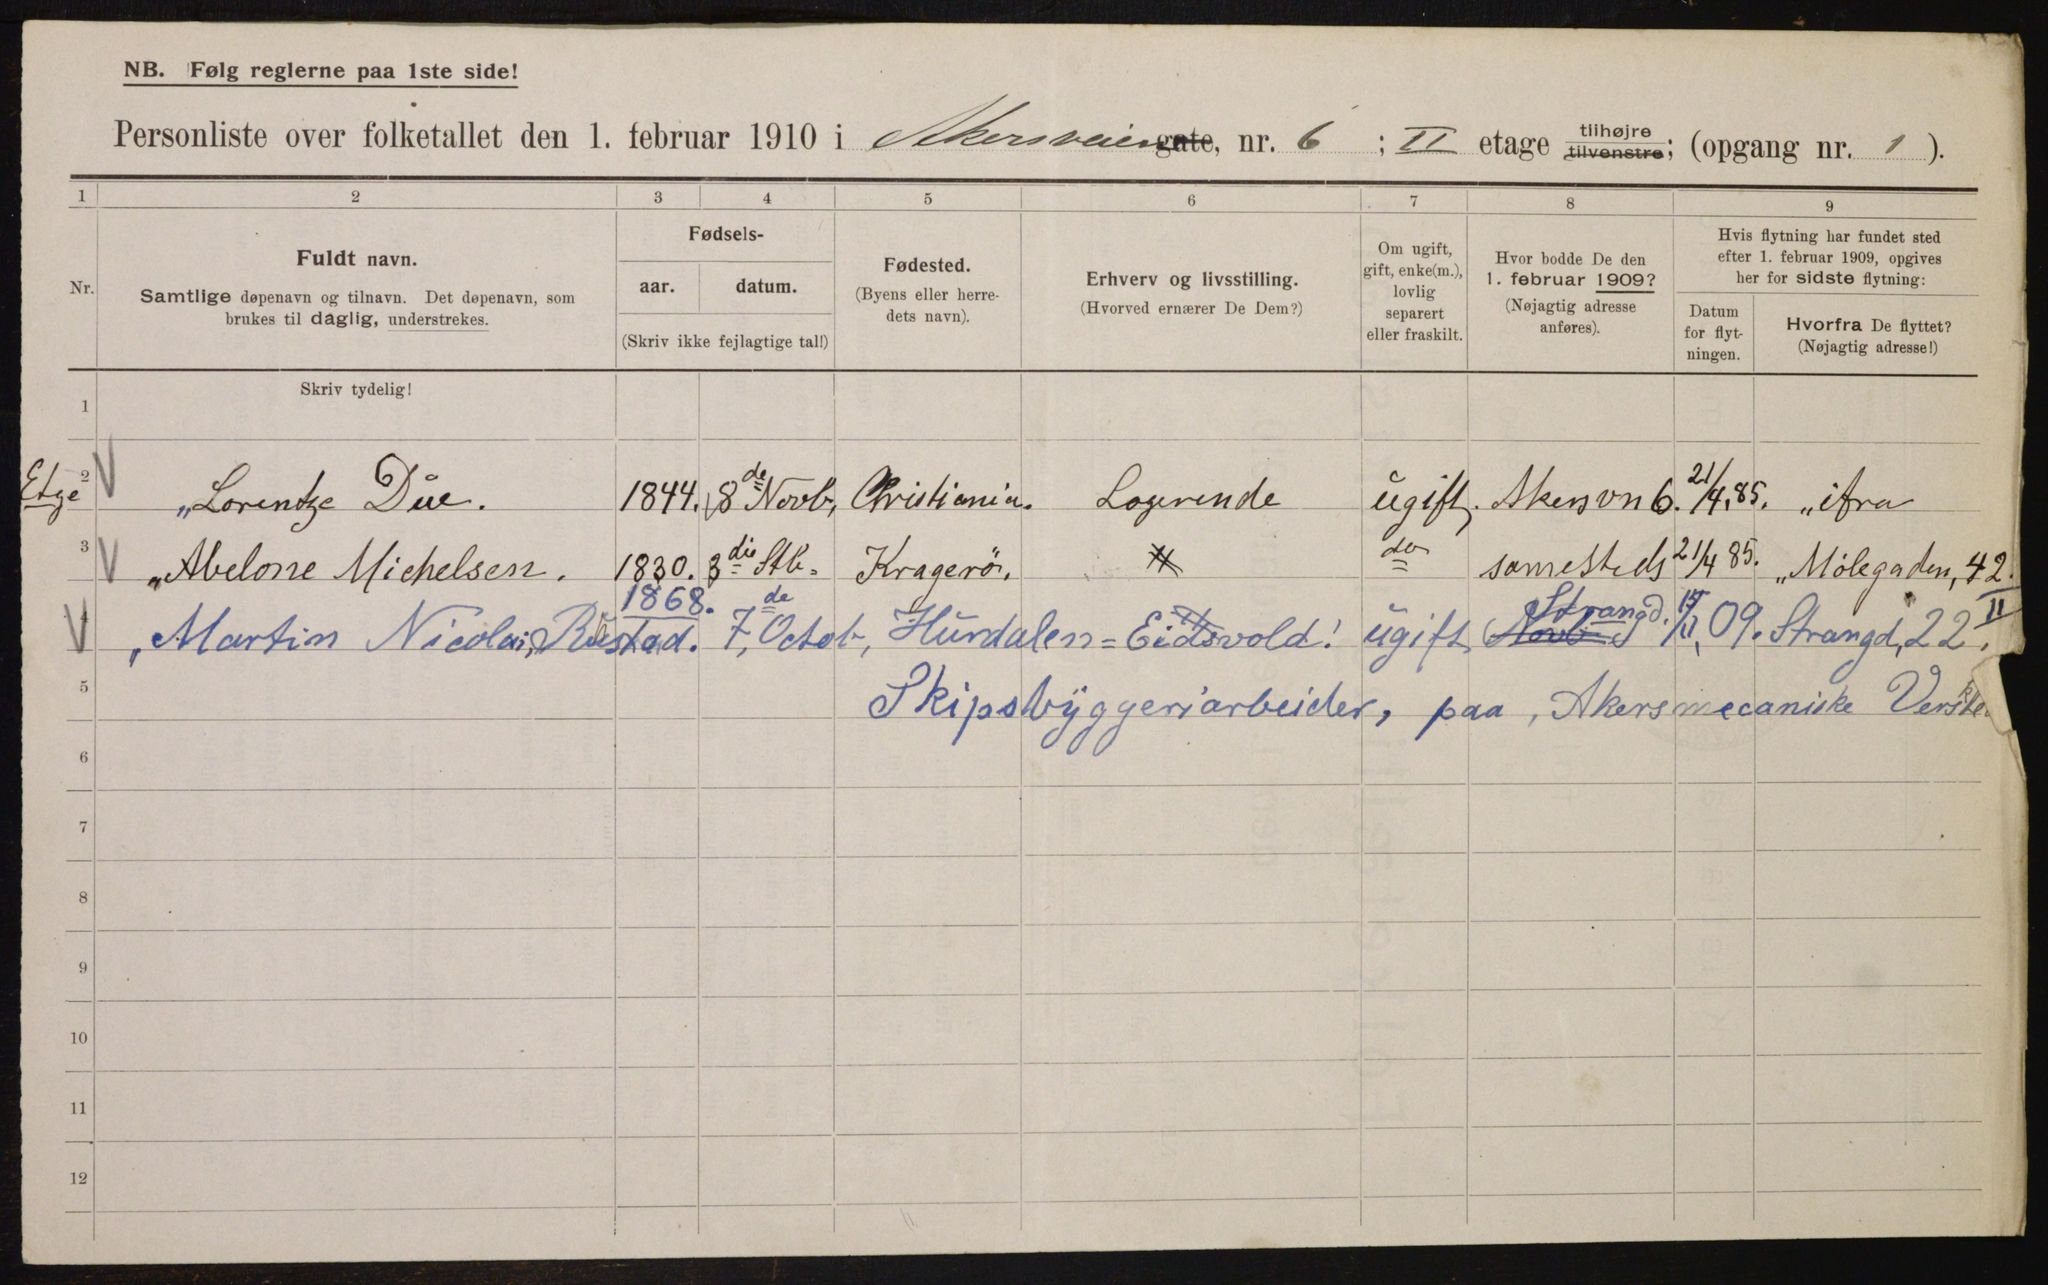 NB. Følg reglerne paa 1ste side!
Personliste over folketallet den 1. februar 1910 i Akersveien gate, nr. 6 ; II etage tilhøjre tilvenstre; (opgang nr. 1 ).
1 2 3 4 5 6 7 8 9
Nr.
Fuldt navn.
Samtlige døpenavn og tilnavn. Det døpenavn, som
brukes til daglig, understrekes.
Fødsels-
aar. datum.
(Skriv ikke fejlagtige tal!)
Fødested.
(Byens eller herre-
dets navn).
Erhverv og livsstilling.
(Hvorved ernærer De Dem?)
Om ugift,
gift, enke(m.),
lovlig
separert
eller fraskilt.
Hvor bodde De den
1. februar 1909?
(Nøjagtig adresse
anføres).
Hvis flytning har fundet sted
efter 1. februar 1909, opgives
her for sidste flytning:
Datum
for flyt-
ningen.
Hvorfra De flyttet?
(Nøjagtig adresse!)
Skriv tydelig!
1
Etge 2 „Lorentze Due. 1844. 8de Novb, Christiania. Logerende ugift. Akersvn 6. 21/4.85. „ifra
3 „Abelone Michelsen. 1830. 3die Stb. Kragerö. do samesteds 21/4 85. „Mölegaden, 42.
4 „Martin Nicolai, Rustad. 1868. 7,de Octob, Hurdalen = Eidsvold! ugift Strangd. 09. Strangd, 22, II
5 Skipsbyggeriarbeider, paa, Akersmecaniske
6
7
8
9
10
11
12